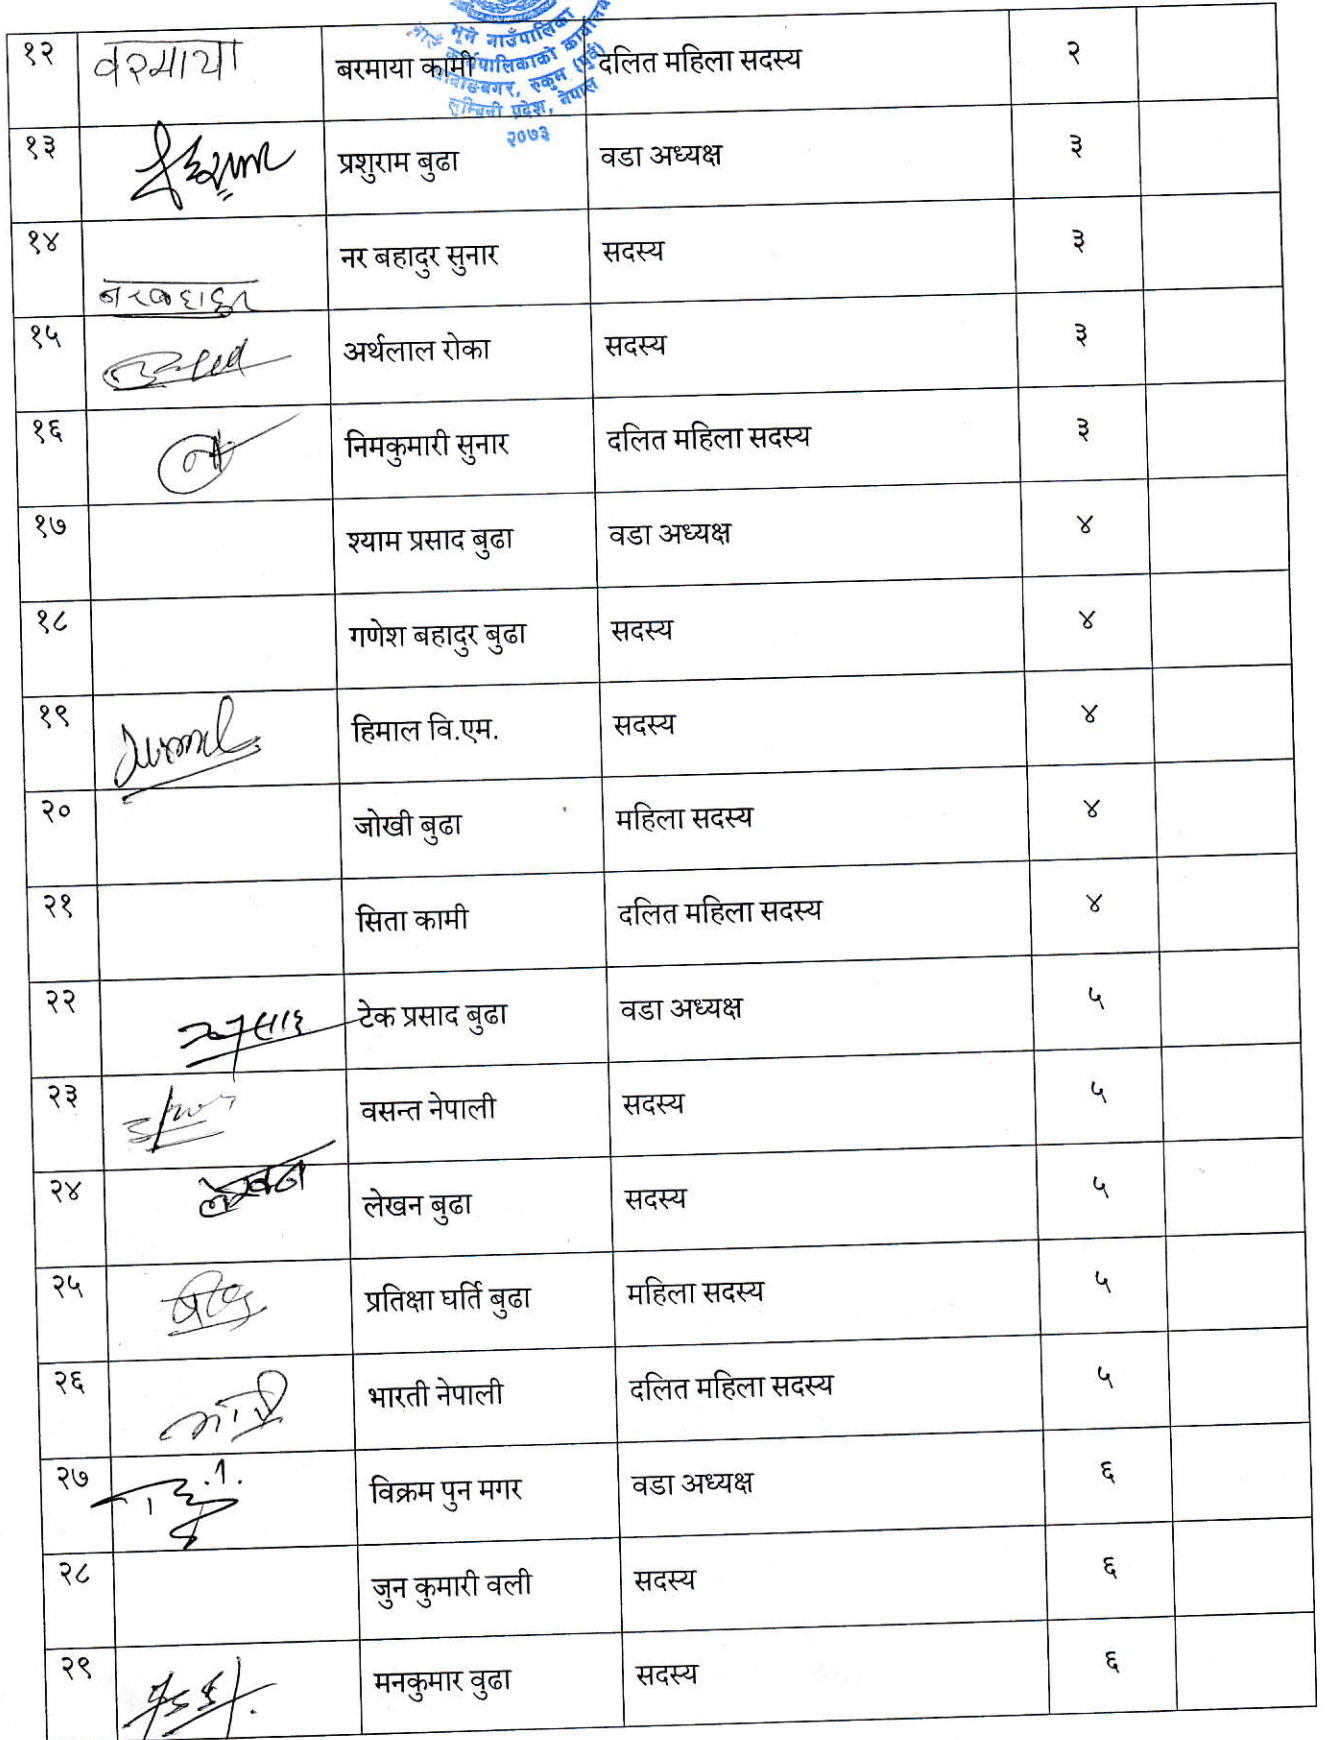 भूमे गाउँपालिका
गाउँ कार्यपालिकाको कार्यालय
रुकुम (पूर्व)
लुम्बिनी प्रदेश, नेपाल
२०७३
१२ वरमाया बरमाया कामी दलित महिला सदस्य २
१३ प्रशुराम बुढा वडा अध्यक्ष ३
१४ नरबहादुर नर बहादुर सुनार सदस्य ३
१५ अर्थलाल रोका सदस्य ३
१६ निमकुमारी सुनार दलित महिला सदस्य ३
१७ श्याम प्रसाद बुढा वडा अध्यक्ष ४
१८ गणेश बहादुर बुढा सदस्य ४
१९ हिमाल वि.एम. सदस्य ४
२० जोखी बुढा महिला सदस्य ४
२१ सिता कामी दलित महिला सदस्य ४
२२ टेक प्रसाद बुढा वडा अध्यक्ष ५
२३ वसन्त नेपाली सदस्य ५
२४ लेखन लेखन बुढा सदस्य ५
२५ प्रतिक्षा घर्ति बुढा महिला सदस्य ५
२६ भारती नेपाली दलित महिला सदस्य ५
२७ विक्रम पुन मगर वडा अध्यक्ष ६
२८ जुन कुमारी वली सदस्य ६
२९ मनकुमार वुढा सदस्य ६